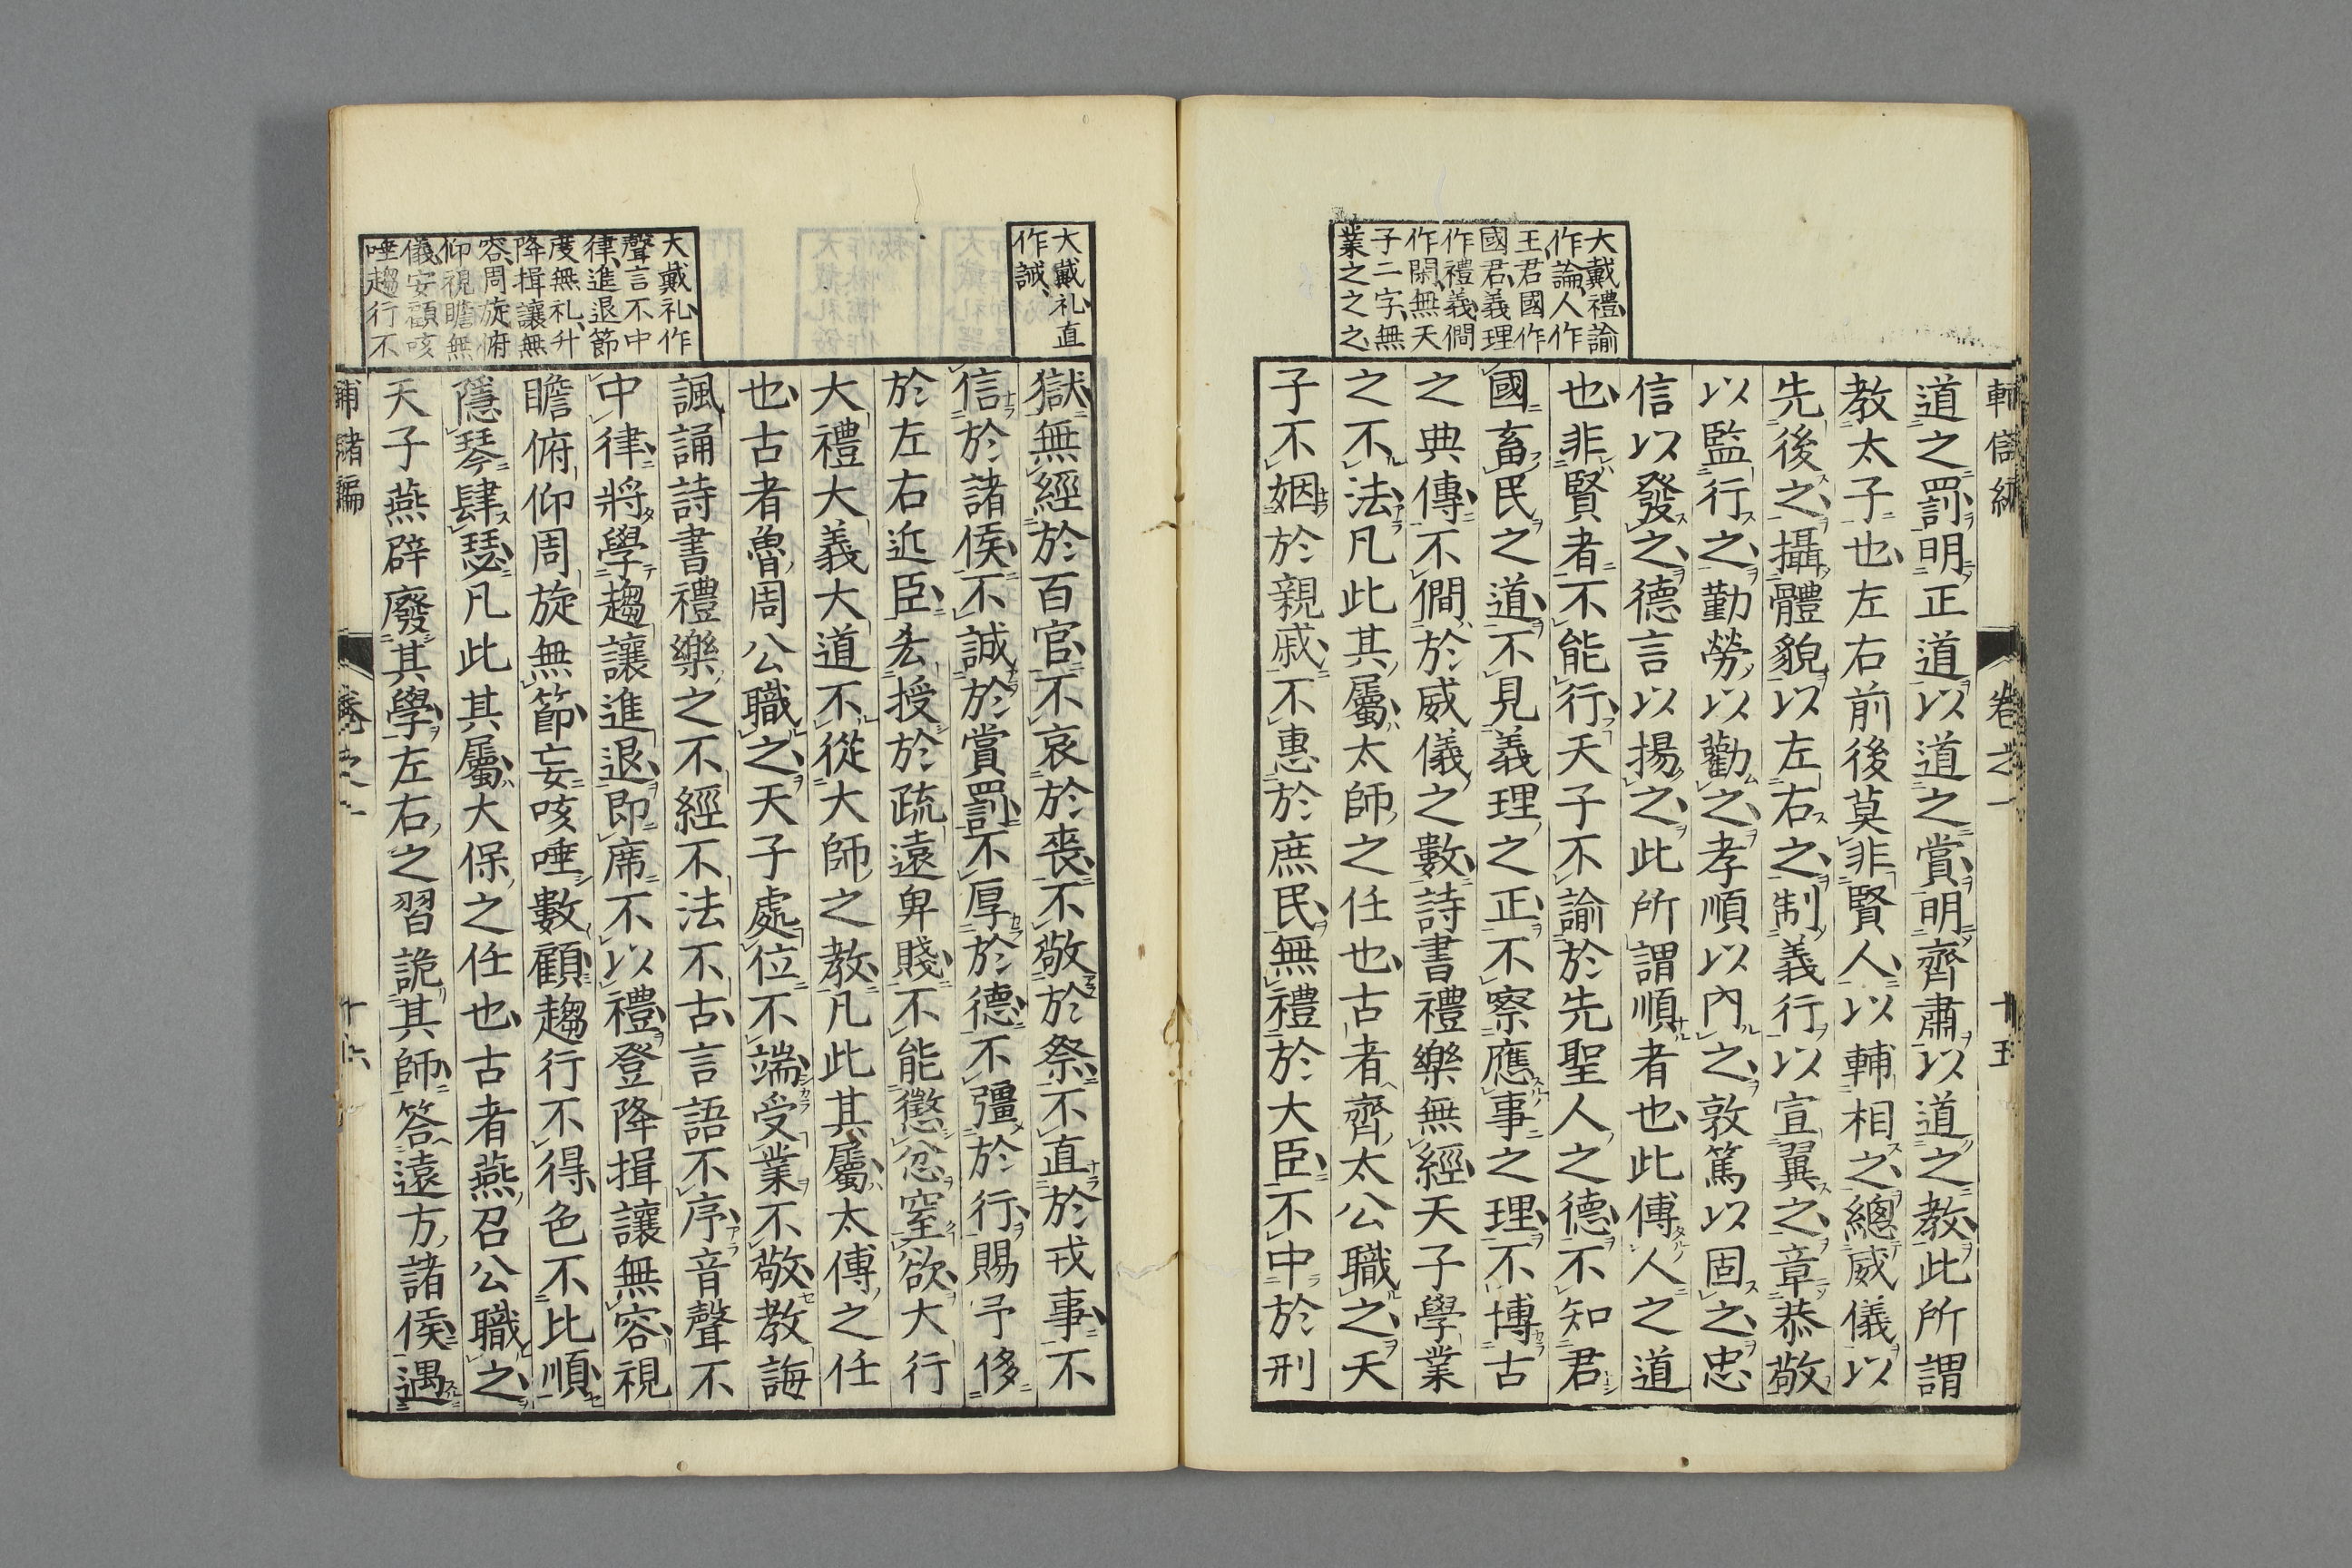 卷之一
十五
大戴禮諭
作論人作
王君國作
國君義理
作禮義僩
作閑無天
子二字無
業之之之
道之罰明正道以道之賞明齊肅以道之教此所謂
教太子也左右前後莫非賢人以輔相之總威儀以
先後之攝體貌以左右之制義行以宣翼之章恭敬
以監行之勤勞以勸之孝順以內之敦篤以固之忠
信以發之德言以揚之此所謂順者也此傅人之道
也非賢者不能行天子不諭於先聖人之德不知君
國畜民之道不見義理之正不察應事之理不博古
之典傳不僩於威儀之數詩書禮樂無經天子學業
之不法凡此其屬太師之任也古者齊太公職之天
子不姻於親戚不惠於庶民無禮於大臣不中於刑
大戴礼直
作誠
獄無經於百官不哀於喪不敬於祭不直於戎事不
信於諸侯不誠於賞罰不厚於德不彊於行賜予侈
於左右近臣㳒授於疏遠卑賤不能懲忿窒欲大行
大禮大義大道不從大師之教凡此其屬太傅之任
也古者魯周公職之天子處位不端受業不敬教誨
諷誦詩書禮樂之不經不法不古言語不序音聲不
中律將學趨讓進退即席不以禮登降揖讓無容視
瞻俯仰周旋無節妄咳唾數顧趨行不得色不比順
隱琴肆瑟凡此其屬大保之任也古者燕召公職之
天子燕辟廢其學左右之習詭其師答遠方諸侯遇
大戴礼作
聲言不中
律進退節
度無礼升
降揖讓無
容周旋俯
仰視瞻無
儀安顧咳
唾趨行不
輔儲編
卷之一
十六